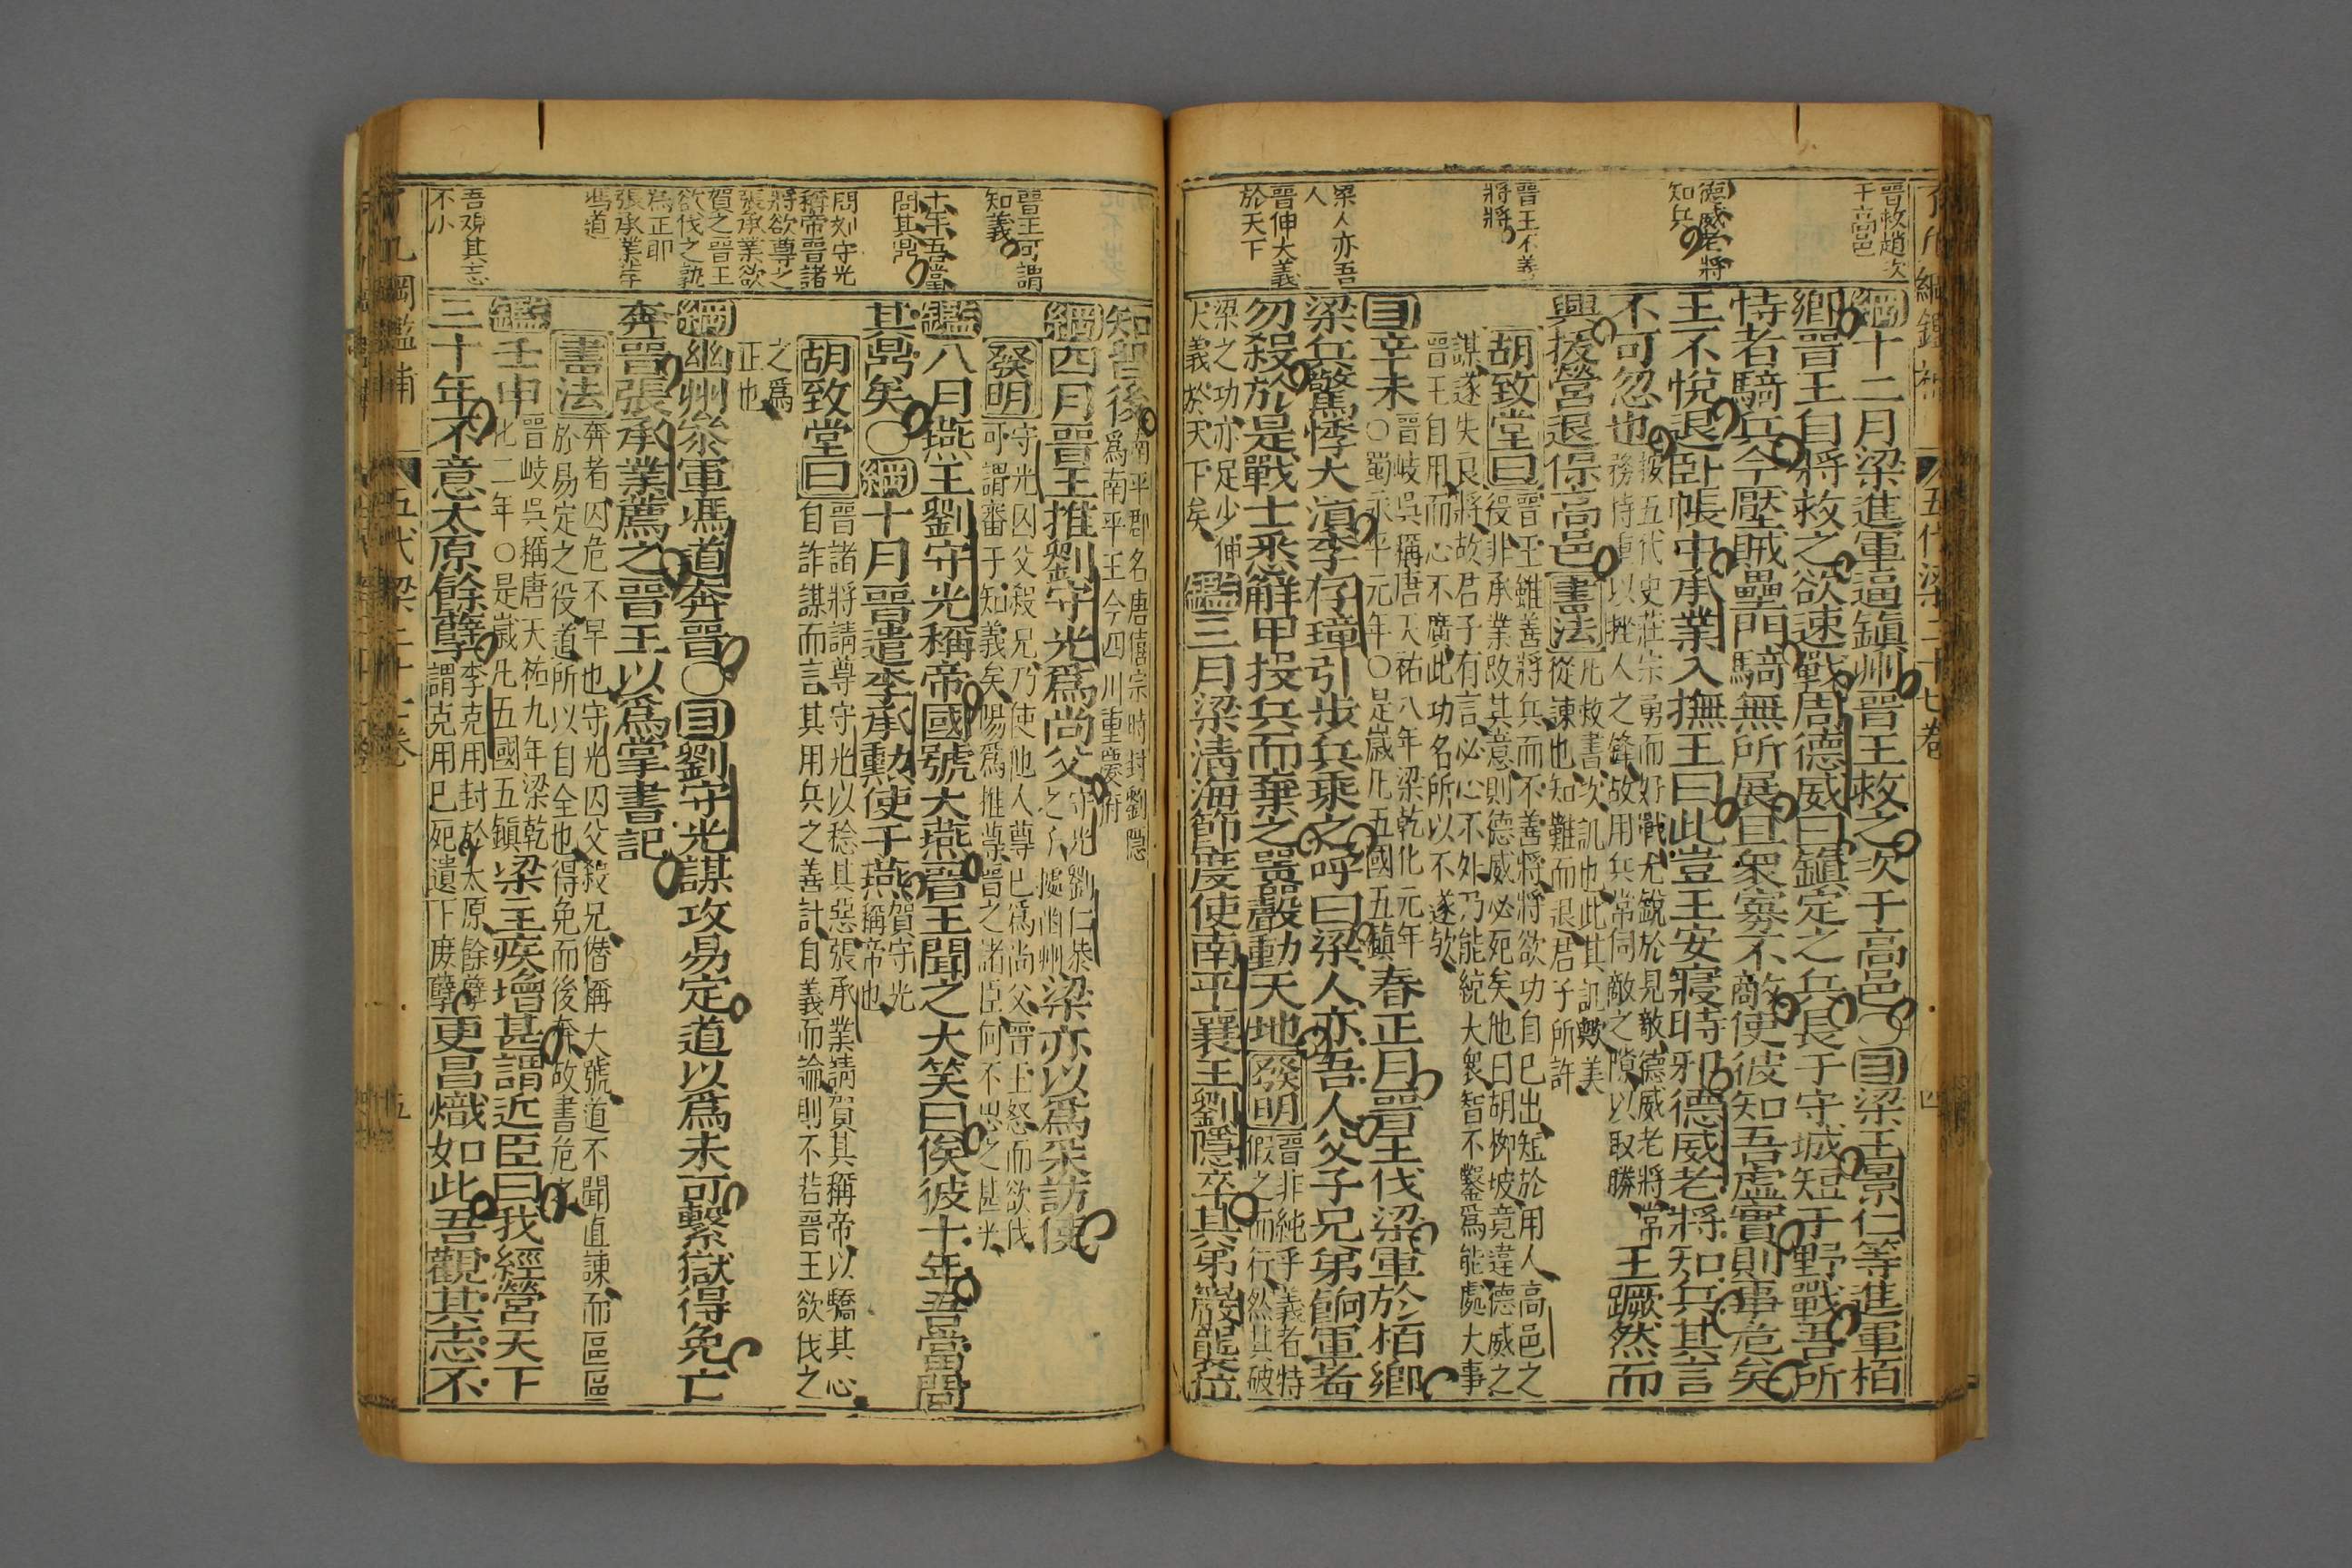 晉救趙次
于高邑
德威老將
知兵
晉王不善
將將
梁人亦吾
人
晉伸大義
於天下
綱十二月梁進軍逼鎭州晉王救之次于高邑〇目梁王景仁等進軍栢
鄉晉王自將救之欲速戰周德威曰鎭定之兵長于守城短于野戰吾所
恃者騎兵今壓賊壘門騎無所展且衆寡不敵使彼知吾虛實則事危矣
王不悅退卧帳中承業入撫王曰此豈王安寢時耶德威老將知兵其言
不可忽也
按五代史莊宗勇而好戰尤銳於見敵德威老將常
務持重以挫人之鋒故用兵常伺敵之隙以取勝
王蹶然而
興援營退保高邑書法
凡救書次譏也此其譏歟美
從諫也知難而退君子所許
胡致堂曰
晉王雖善將兵而不善將將欲功自己出短於用人高邑之
役非承業啟其意則德威必死矣他日胡柳坡竟違德威之
謀遂失良將故君子有言必心不外乃能統大衆智不鑿爲能處大事
晉王自用而心不廣此功名所以不遂歟
目辛未
晉岐吳稱唐天祐八年梁乾化元年
〇蜀永平元年〇是歲凡五國五鎭
春正月晉王伐梁軍於栢鄉
梁兵驚怖大潰李存璋引步兵乘之呼曰梁人亦吾人父子兄弟餉軍者
勿殺於是戰士悉解甲投兵而棄之嚣聲動天地發明
晉非純乎義者特
假之而行然其破
梁之功亦足少伸
大義於天下矣
鑑三月梁淸海節度使南平襄王劉隱卒其弟巖襲位
五代梁二十七卷
四
晉王可謂
知義
十年吾當
問其鼎
問劉守光
稱帝晉諸
將欲尊之
張承業欲
賀之晉王
欲伐之孰
爲正耶
張承業薦
馮道
吾覌其志
不小
知留後
南平郡名唐僖宗時封劉隱
爲南平王今四川重慶府
綱四月晉王推劉守光爲尚父
守光劉仁恭
之子據幽州
梁亦以爲采訪使
發明
守光囚父殺兄乃使他人尊己爲尚父晉王怒而欲伐
可謂審于知義矣陽爲推尊晉之諸臣何不思之甚乎
鑑八月燕王劉守光稱帝國號大燕晉王聞之大笑曰俟彼十年吾當問
其鼎矣〇綱十月晉遣李承勳使于燕
賀守光
稱帝也
胡致堂曰
晉諸將請尊守光以稔其惡張承業請賀其稱帝以驕其心
自詐謀而言其用兵之善計自義而論則不若晉王欲伐之
之爲
正也
綱幽州叅軍馮道奔晉〇目劉守光謀攻易定道以爲未可繫獄得免亡
奔晉張承業薦之晉王以爲掌書記
書法
奔者囚危不早也守光囚父殺兄僭稱大號道不聞直諫而區區
於易定之役道所以自全也得免而後奔故書危之
鑑壬申
晉岐吳稱唐天祐九年梁乾
化二年〇是歲凡五國五鎭
梁主疾增甚謂近臣曰我經營天下
三十年不意太原餘孽
李克用封於太原餘孽
謂克用已死遺下庶孽
更昌熾如此吾觀其志不
了凡綱鑑補
五代梁二十七卷
五